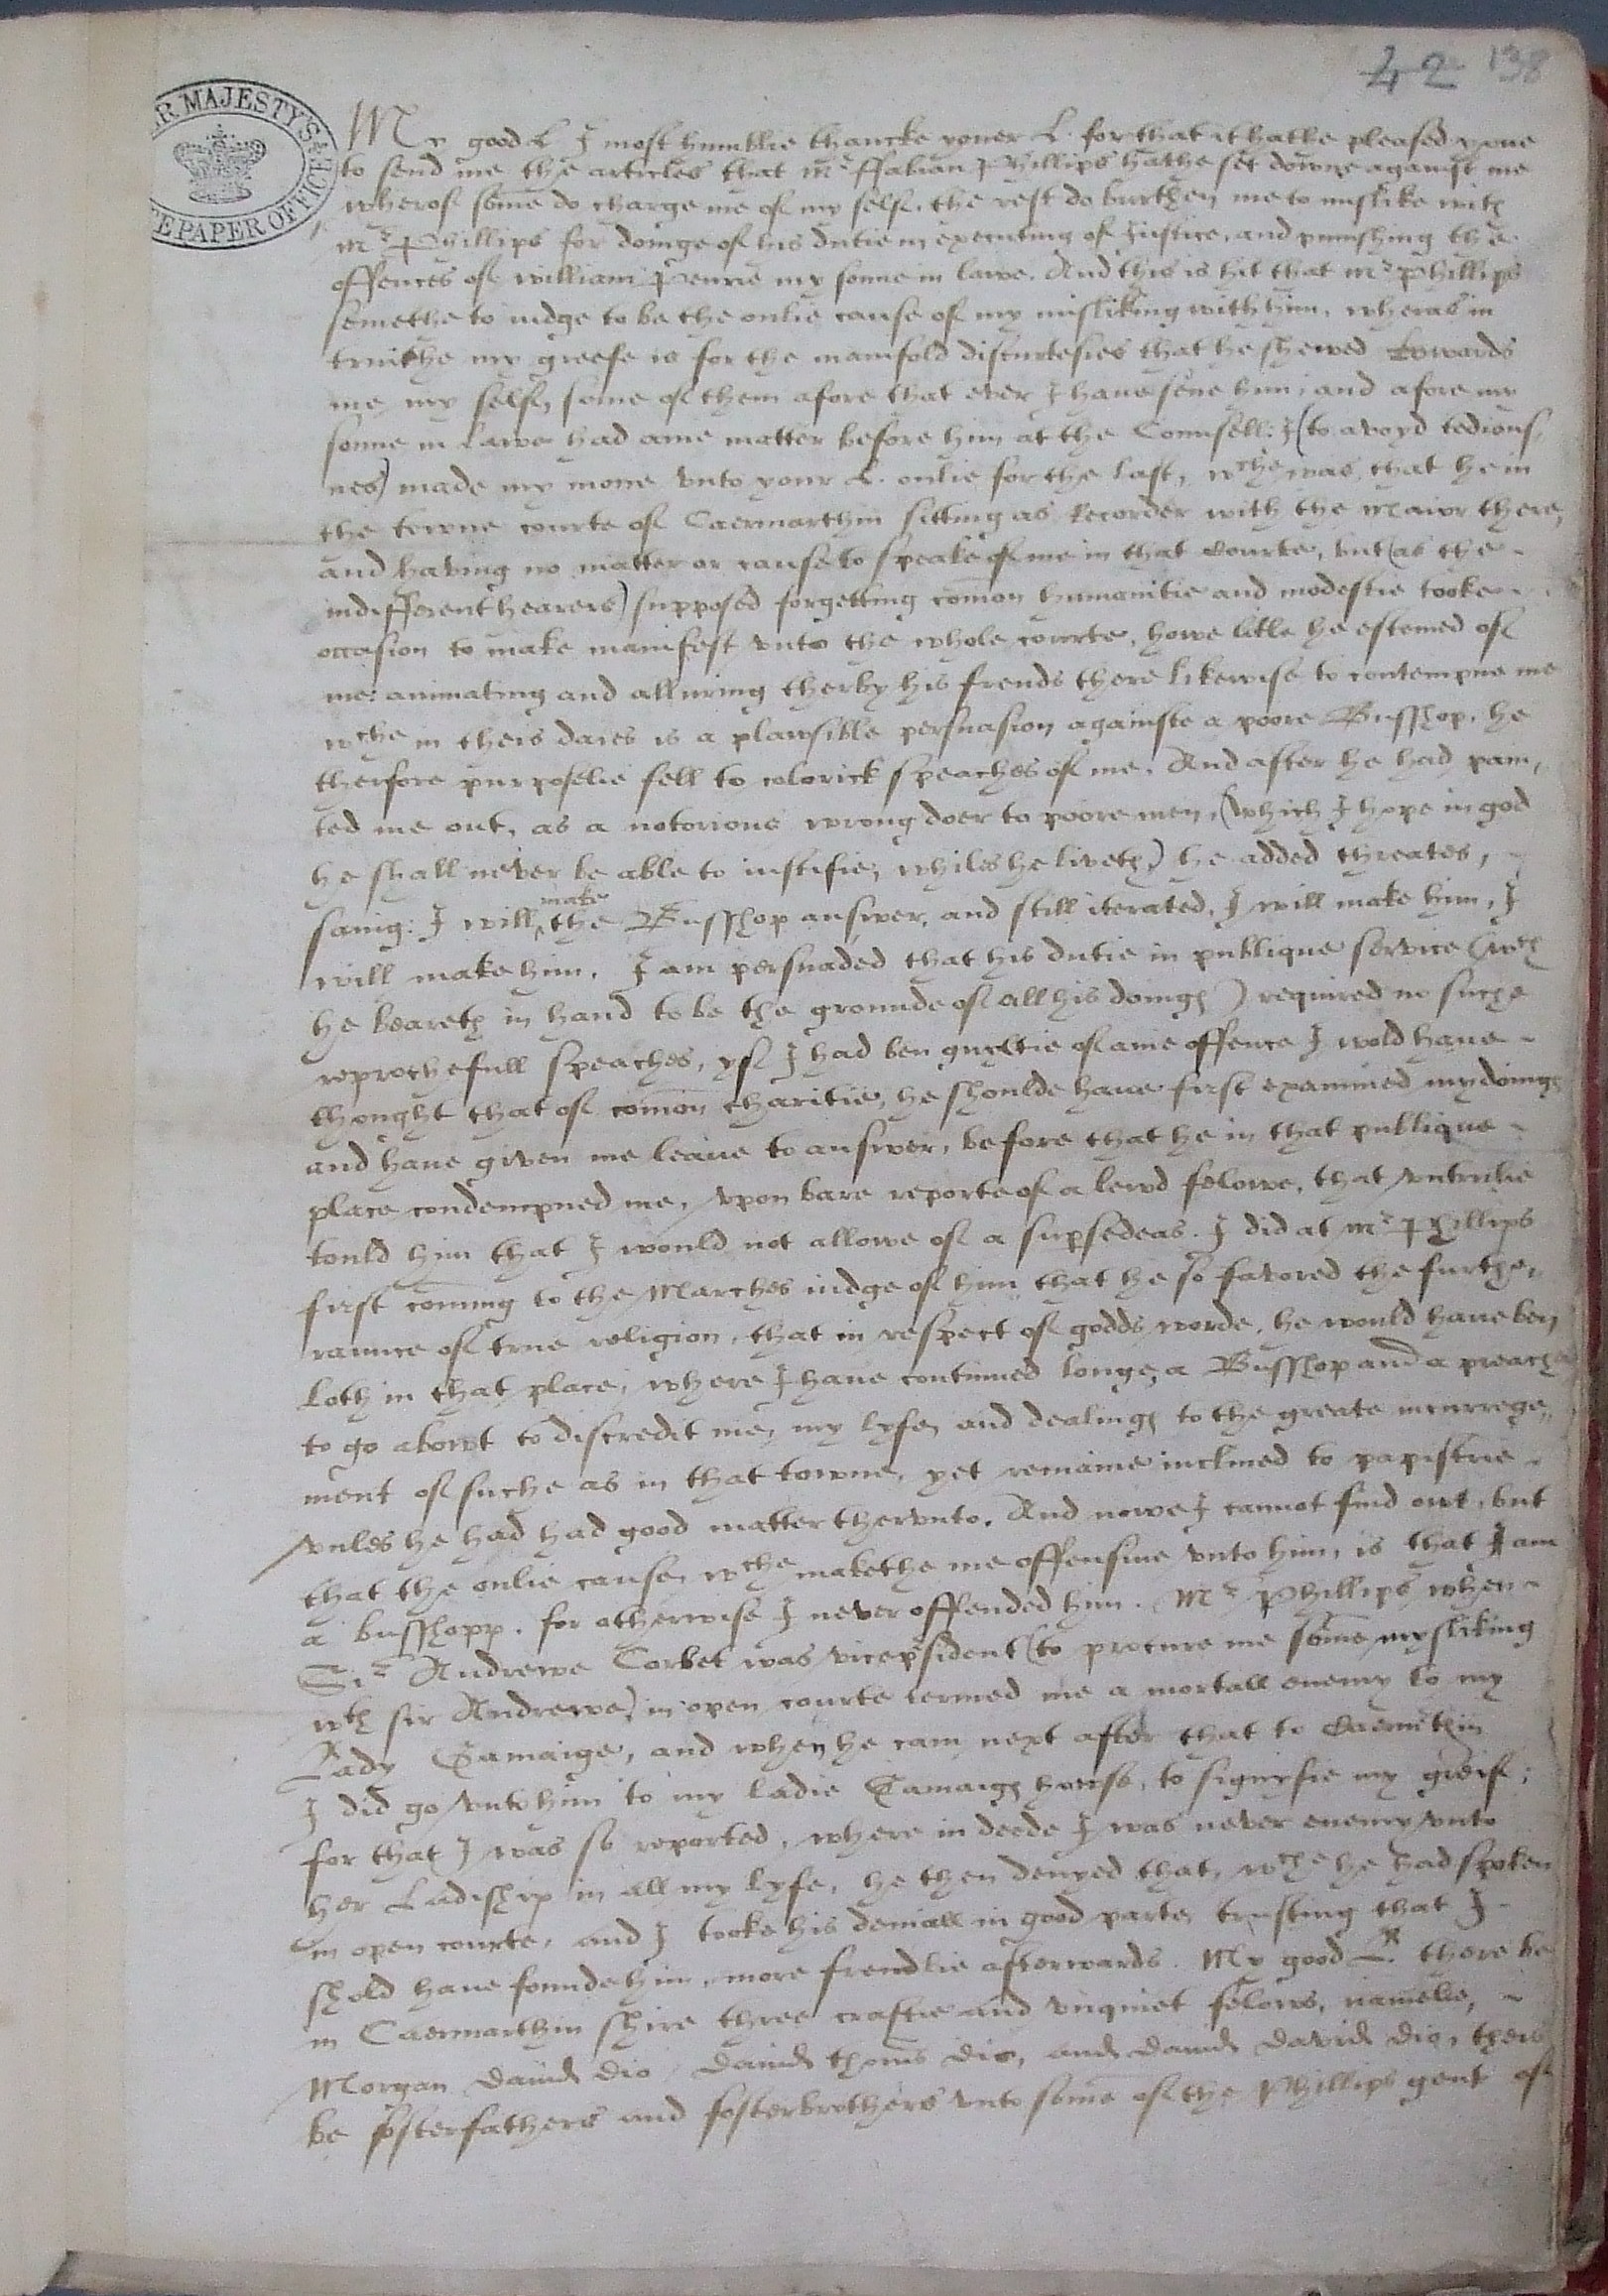 42 138
ER MAJESTY'S
E PAPER OFFICE
My good L I most humblie thancke youer L. for that it hathe pleased youe
to send me the articles that Mr ffabian Phillips hathe set downe against me
wherof some do charge me of my self. the rest do burthen me to mislike with
Mr Phillips for doinge of his dutie in executing of Justice, and punishing the
offences of william Penrie my sonne in lawe. And this is hit that Mr Phillips
semethe to iudge to be the onlie cause of my misliking with him, wheras in
truithe my greefe is for the manifold discurtesies that he shewed towards
me my self, some of them afore that ever I have sene him, and afore my
sonne in Lawe had anie matter before him at the Counsell: I (to avoyd tedious,
nes) made my mone vnto your L. onlie for the last, wche was, that he in
the towne courte of Caermarthin sitting as Recorder with the Maior there,
and having no matter or cause to speake of me in that courte, but (as the
indifferent hearers) supposed forgetting comon humanitie and modestie tooke
occasion to make manifest vnto the whole courte, howe litle he estemed of
me: animating and alluring therby his frends there likewise to contempne me
wche in theis daies is a plawsible perswasion againste a poore Busshop. he
therfore purposelie fell to colorick speaches of me. And after he had pain,
ted me out, as a notorious wrong doer to poore men, (which I hope in god
he shall never be able to iustifie, whiles he liveth) he added threates,
saing: I will make the Busshop answer, and still iterated, I will make him, I
will make him. I am perswaded that his dutie in publique service (wch
he beareth in hand to be the grounde of all his doings) required no suche
reprochefull speaches, yf I had ben gyltie of anie offence I wold have
thought that of comon charitie, he shoulde have first examined my doings
and have given me leave to answer, before that he in that publique
place condempned me, vpon bare reporte of a lewd felowe, that vntrulie
tould him that I would not allowe of a supsedeas. I did at Mr Phillips
first coming to the Marches iudge of him that he so favored the furthe,
raunce of true religion, that in respect of godds worde, he would have ben
loth in that place, where I have continued longe, a Busshop and a preacher
to go abowt to discredit me, my lyfe, and dealings to the greate incurrege,
ment of suche as in that towne, yet remaine inclined to papistrie
vnles he had had good matter thervnto. And nowe I cannot find owt, but
that the onlie cause, wche makethe me offensive vnto him, is that I am
a busshopp. for otherwise I never offended him. Mr Phillips when
Sir Andrewe Corbet was vicepsident (to procure me some mysliking
wth sir Andrewe) in open courte termed me a mortall enemy to my
Lady Gamaige, and when he cam next after that to Caermthin
I did go vnto him to my ladie Gamaigs howse, to signyfie my greif;
for that I was so reported, where in deede I was never enemy vnto
her Ladiship in all my lyfe, he then denyed that, wche he had spoken
in open courte, and I tooke his deniall in good parte, trusting that I
shold have founde him, more frendlie afterwards. My good L. there be
in Caermarthin shire three craftie and vnquiet felows, namelie,
Morgan David Dio, David Thoms Dio, and David David Dio, theis
be fosterfathers and fosterbrothers vnto some of the Phillips gent of